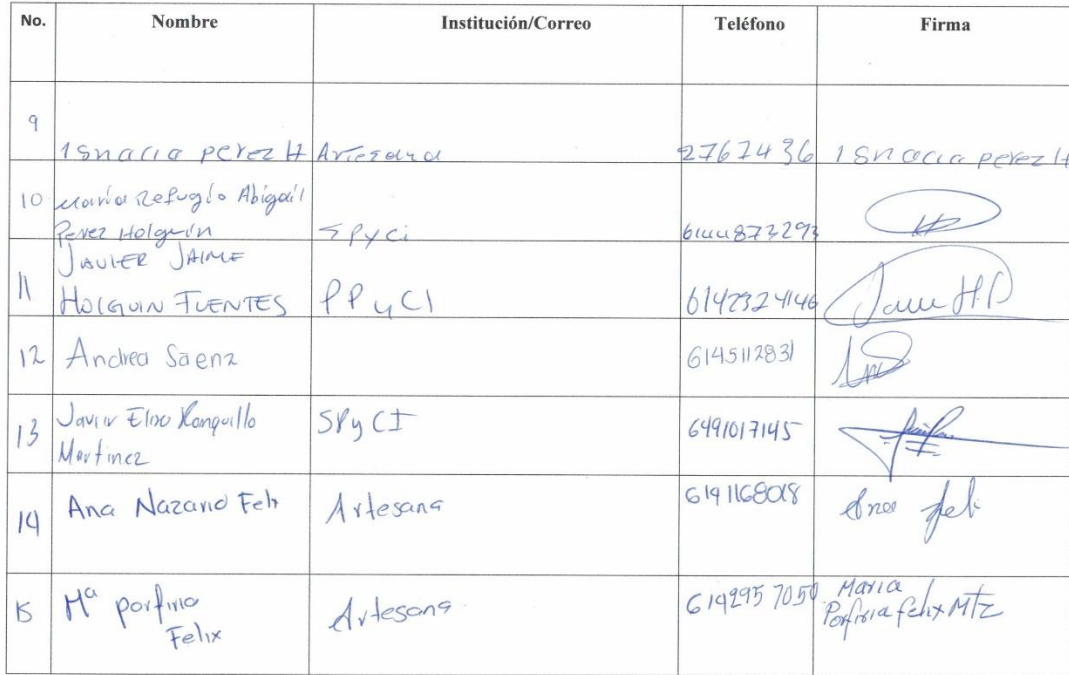 No. Nombre Institución/Correo Teléfono Firma
9 Ignacia perez H Artesana 2767436 Ignacia perez H
10 Maria Refugio Abigail
Perez Holguin SPyCi 6144873293
11 JAVIER JAIME
HOLGUIN FUENTES PPyCI 6142324146 Javier H.
12 Andrea Saenz 6145112831
13 Javier Eliso Ronquillo
Martinez SPyCI 6491017145
14 Ana Nazario Felix Artesana 6141168018 Ana feli
15 Mª porfiria
Felix Artesana 6142957050 Maria
Porfiria felix Mtz